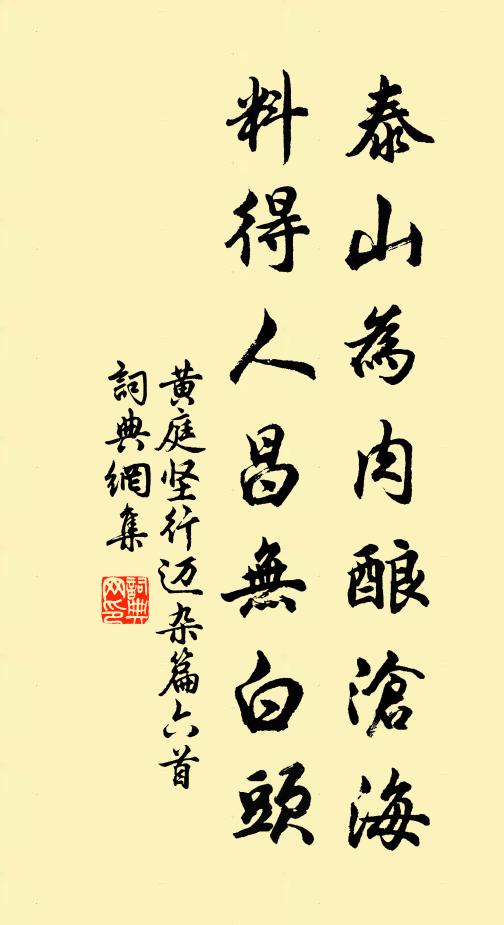 泰山為肉酿滄海
料得人昌無白頭
黄庭坚行迈杂篇六首
詞典網集
詞典網印